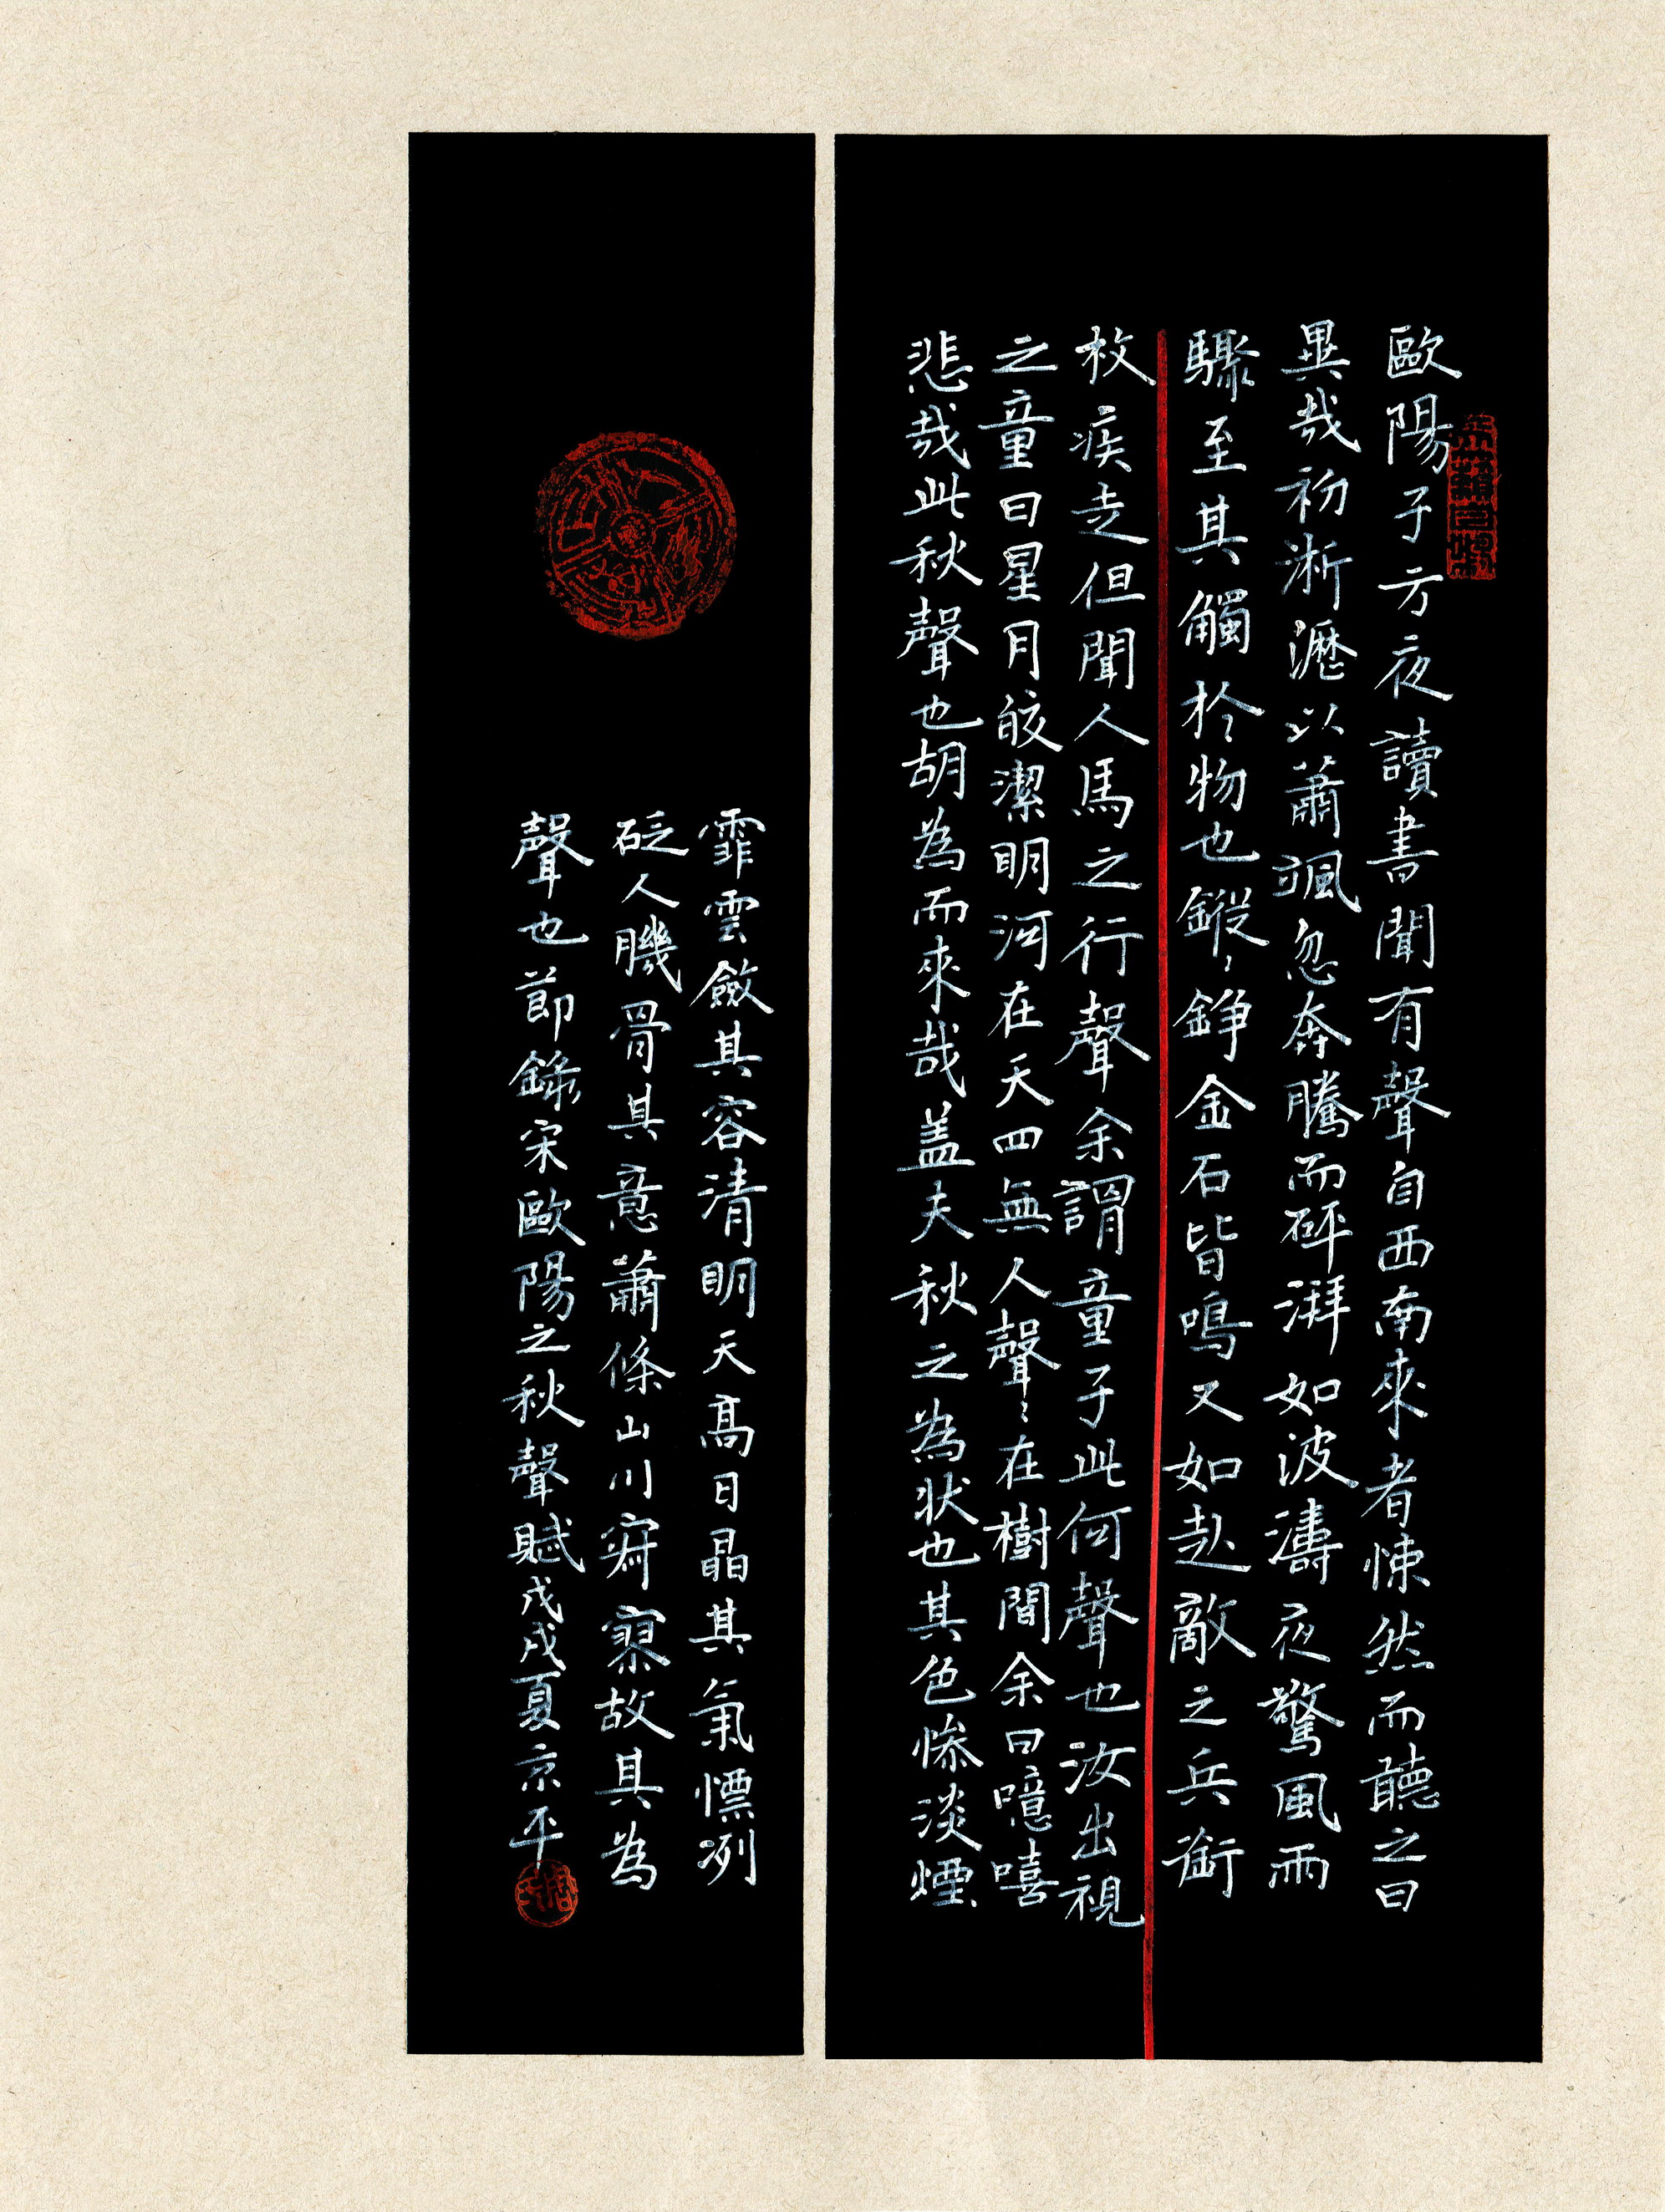 歐陽子方夜讀書聞有聲自西南來者悚然而聽之曰
異哉初淅瀝以蕭颯忽奔騰而砰湃如波濤夜驚風雨
驟至其觸於物也鏦〻錚金石皆鳴又如赴敵之兵銜
枚疾走但聞人馬之行聲余謂童子此何聲也汝出視
之童曰星月皎潔明河在天四無人聲〻在樹間余曰噫嘻
悲哉此秋聲也胡為而來哉盖夫秋之為状也其色慘淡煙
霏雲斂其容清明天高日晶其氣慄冽
砭人機骨其意蕭條山川寂寥故其為
聲也節錄宋歐陽之秋聲賦戊戌夏京平